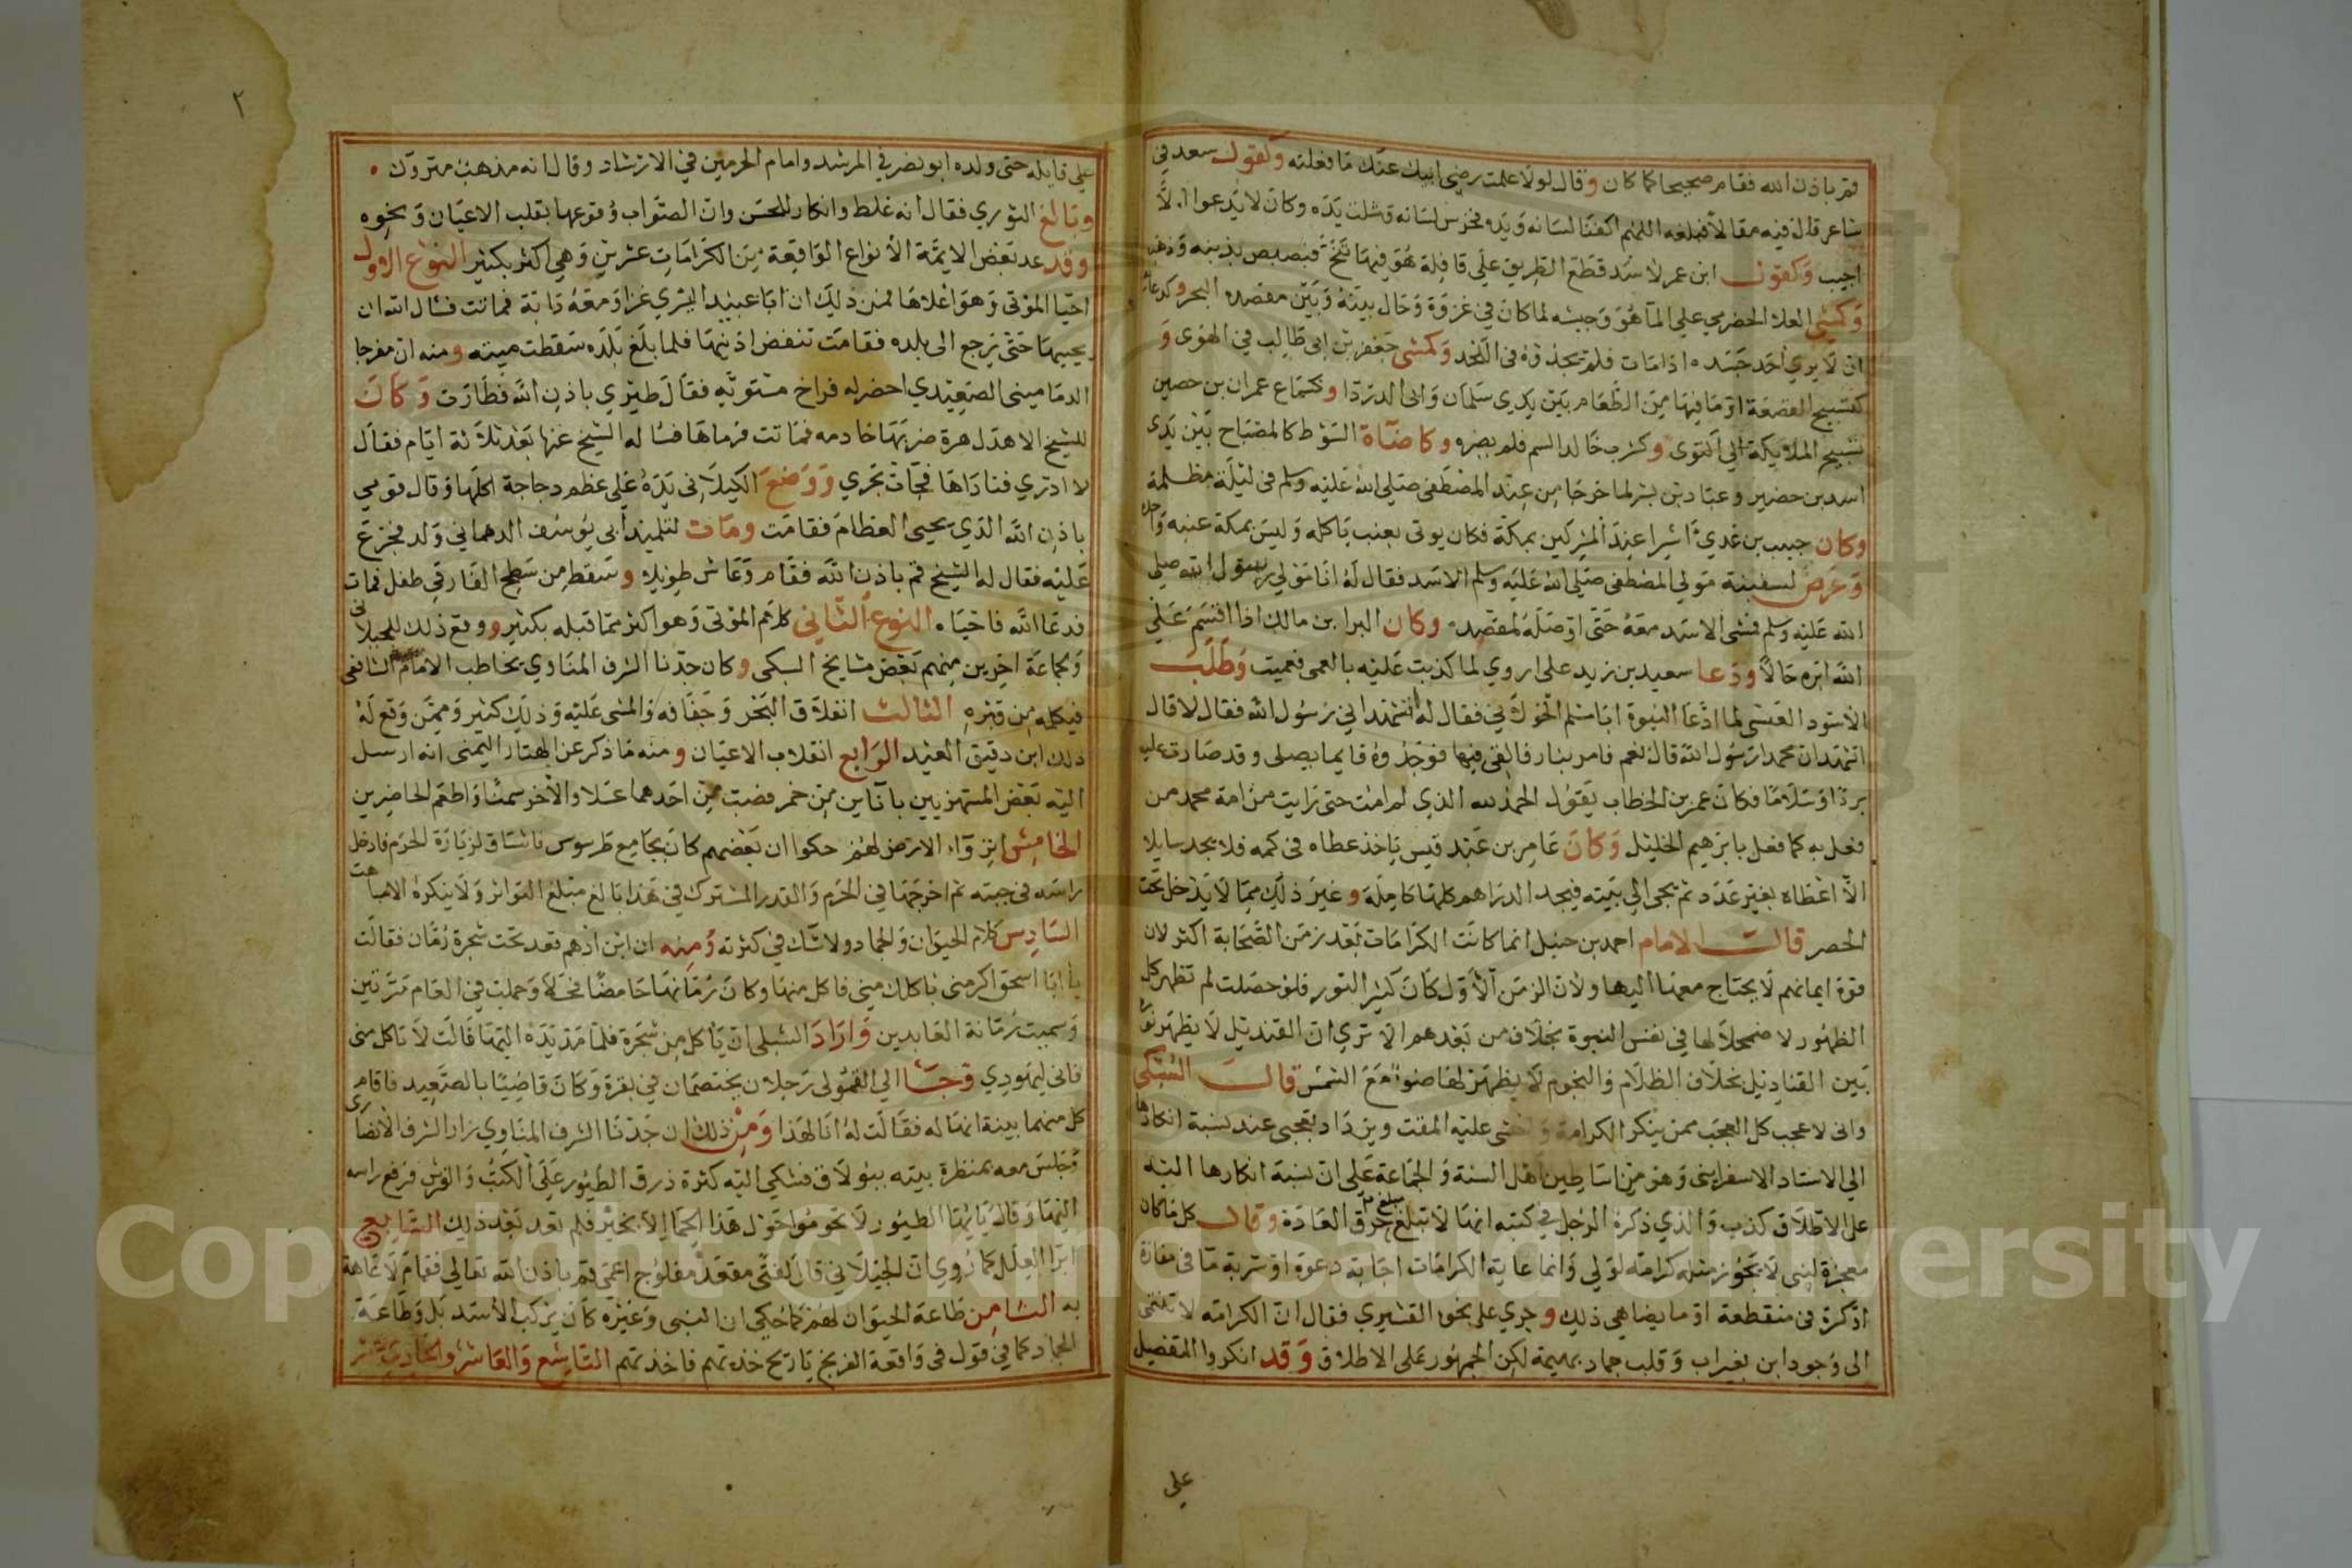 قم باذن الله فقام صحيحا كما كان وقال لولا علمت رضى ابيك عنك ما فعلته وكقول سعد في
شاعر قال فيه مقالا فبلغه اللهم اكفنا لسانه ويده فخرس لسانه وشلت يده وكان لا يدعوا الا
اجيب وكقول ابن عمر لاسد قطع الطريق على قافلة هو فيها تنح فبصبص بذنبه وذهب
وكمشي العلا الحضرمي على الما هو وجيشه لما كان في غزوة وحال بينه وبين مقصده البحر وكدعائه
ان لا يرى احد جسده اذا مات فلم يجدوه في اللحد وكمشى جعفر بن ابى طالب في الهوى و
كتسبيح القصعة او ما فيها من الطعام بين يدى سلمان وابى الدردا وكسماع عمران بن حصين
تسبيح الملايكة الى اكتوى وكشرب خالد السم فلم يضره وكاضاة السوط كالمصباح بين يدى
اسد بن حضير وعباد بن بشر لما خرجا من عند المصطفى صلى الله عليه وسلم فى ليلة مظلمة
وكان حبيب بن عدي اسيرا عند المشركين بمكة فكان يوتى بعنب ياكله وليس بمكة عنبه واحده
وعرض لسفينة مولى المصطفى صلى الله عليه وسلم الاسد فقال له انا مولى رسول الله صلى
الله عليه وسلم فمشى الاسد معه حتى اوصله لمقصده وكان البرا بن مالك اذا اقسم على
الله ابره حالا ودعا سعيد بن زيد على اروي لما كذبت عليه بالعمى فعميت وطلب
الاسود العنسى لما ادعا النبوة ابا مسلم الخولاني فقال له اتشهد اني رسول الله فقال لا قال
اتشهد ان محمدا رسول الله قال نعم فامر بنار فالقى فيها فوجدوه قايما يصلى وقد صارت عليه
بردا وسلاما فكان عمر بن الخطاب يقول الحمد لله الذي لم امت حتى رايت من امة محمد من
فعل به كما فعل بابرهيم الخليل وكان عامر بن عبد قيس ياخذ عطاه في كمه فلا يجد سايلا
الا اعطاه بغير عدد ثم يجى الى بيته فيجد الدراهم كلها كاملة وغير ذلك مما لا يدخل تحت
الحصر قال الامام احمد بن حنبل انما كانت الكرامات بعد زمن الصحابة اكثر لان
قوة ايمانهم لا يحتاج معها اليها ولان الزمن الاول كان كثير النور فلو حصلت لم تظهر كل
الظهور لاضمحلالها في نفس النبوة بخلاف من بعدهم الا ترى ان القنديل لا يظهر نوره
بين القناديل بخلاف الظلام والنجوم لا يظهر لها ضوا مع الشمس قال السبكى
وانى لاعجب كل العجب ممن ينكر الكرامة واخشى عليه المقت ويزداد تعجبى عند نسبة انكارها
الى الاستاد الاسفراينى وهو من اساطين اهل السنة والجماعة على ان نسبة انكارها اليه
على الاطلاق كذب والذي ذكره الرجل في كتبه انها لا تبلغ مبلغ خرق العادة وقال كل ما كان
معجزة لنبى لا يجوز مثله كرامة لولي وانما غاية الكرامات اجابة دعوة او شربة ما في مفازة
او كرة في منقطعة او ما يضاهي ذلك وجرى على نحوه القشيري فقال ان الكرامة لا تنتهى
الى وجود ابن بغير اب وقلب جماد بهيمة لكن الجمهور على الاطلاق وقد انكروا التفصيل
على
٢
على قايله حتى ولده ابو نصر في المرشد وامام الحرمين في الارشاد وقال انه مذهب متروك
وبالغ النووي فقال انه غلط وانكار للحس وان الصواب وقوعها بقلب الاعيان ونحوه
وقد عد بعض الايمة الانواع الواقعة من الكرامات عشرين وهي اكثر بكثير النوع الاول
احيا الموتى وهو اعلاها فمن ذلك ان ابا عبيد البسري غزا ومعه دابة فماتت فسال الله ان
يحييها حتى يرجع الى بلده فقامت تنفض اذنيها فلما بلغ بلده سقطت ميتة ومنه ان مفرجا
الدماميني الصعيدي احضر له فراخ مشويه فقال طيري باذن الله فطارت وكان
للشيخ الاهدل هرة ضربها خادمه فماتت فرماها فسا له الشيخ عنها بعد ثلاثة ايام فقال
لا ادري فناداها فجات تجري ووضع الكيلانى يده على عظم دجاجة اكلها وقال قومي
باذن الله الذي يحيى العظام فقامت ومات لتلميذ ابي يوسف الدهماني ولد فجزع
عليه فقال له الشيخ قم باذن الله فقام وعاش طويلا وسقط من سطح الفارقي طفل فمات
فدعا الله فاحياه النوع الثاني كلام الموتى وهو اكثر مما قبله بكثير ووقع ذلك للجيلانى
ولجماعة اخرين منهم بعض مشايخ السبكى وكان جدنا الشرف المناوي يخاطب الامام الشافعى
فيكلمه من قبره الثالث انفلاق البحر وجفافه والمشى عليه وذلك كثير وممن وقع له
ذلك ابن دقيق العيد الرابع انقلاب الاعيان ومنه ما ذكر عن الهتار اليمنى انه ارسل
اليه بعض المستهزيين باناين من خمر فصب من احدهما عسلا والاخر سمنا واطعم الحاضرين
الخامس انزواء الارض لهم حكوا ان بعضهم كان بجامع طرسوس فاشتاق لزيارة الحرم فادخل
راسه في جبته ثم اخرجها في الحرم والقدر المشترك في هذا بالغ مبلغ التواتر ولا ينكره الا مباهت
السادس كلام الحيوان والجماد ولا شك في كثرته ومنه ان ابن ادهم قعد تحت شجرة رمان فقالت
يا ابا اسحق اكرمنى باكلك مني فاكل منها وكان رمانها حامضا فحلا وحملت في العام مرتين
وسميت رمانة العابدين واراد الشبلى ان ياكل من شجرة فلما مد يده اليها قالت لا تاكل منى
فانى ليهودي وجا الي القمولى رجلان يختصمان في بقرة وكان قاضيا بالصعيد فاقام
كل منهما بينة انها له فقالت له انا لهذا ومن ذلك ان جدنا الشرف المناوي زار الشرف الانصارى
وجلس معه بمنظرة بيته ببولاق فشكي اليه كثرة ذرق الطيور على الكتب والفرش فرفع راسه
اليها وقال يا ايها الطيور لا تحوموا حول هذا الحما الا بخير فلم تعد بعد ذلك السابع
ابرا العلل كما روي ان الجيلاني قال لفتى مقعد مفلوج اعمى قم باذن الله تعالى فقام لا عاهة
به الثامن طاعة الحيوان لهم كما حكي ان وغيره كان يركب الاسد بل وطاعة
الجماد كما في قول في واقعة الفرنج يا ريح خذيهم فاخذتهم التاسع والعاشر والحادي عشر
Copyright © King Saud University